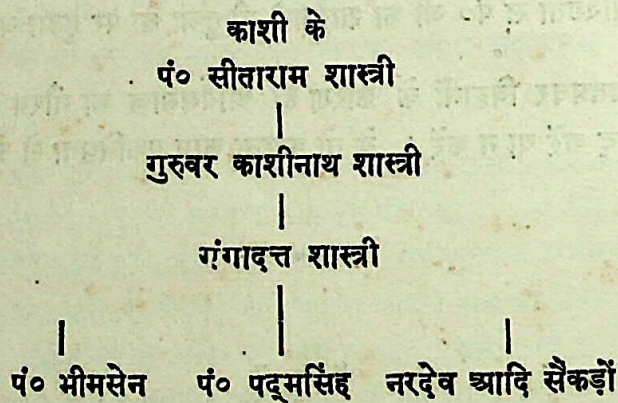 काशी के
पं० सीताराम शास्त्री
गुरुवर काशीनाथ शास्त्री
गंगादत्त शास्त्री
पं० भीमसेन पं० पद्मसिंह नरदेव आदि सैंकड़ों